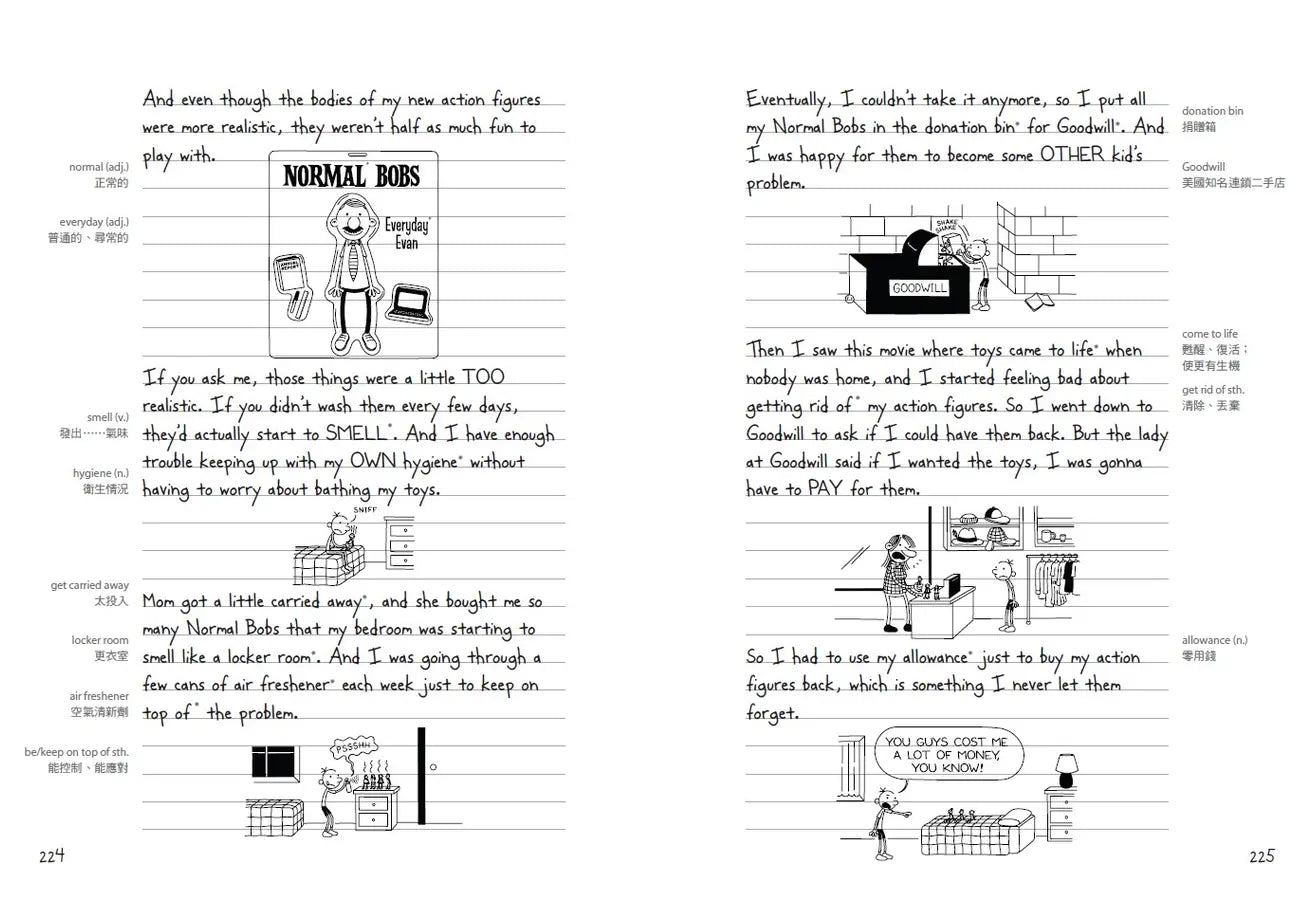 And even though the bodies of my new action figures
were more realistic, they weren't half as much fun to
play with.
normal (adj.)
正常的
everyday (adj.)
普通的、尋常的
NORMAL* BOBS
Everyday*
Evan
ANNUAL
REPORT
If you ask me, those things were a little TOO
realistic. If you didn't wash them every few days,
they'd actually start to SMELL*. And I have enough
trouble keeping up with my OWN hygiene* without
having to worry about bathing my toys.
smell (v.)
發出⋯⋯氣味
hygiene (n.)
衛生情況
SNIFF
Mom got a little carried away*, and she bought me so
many Normal Bobs that my bedroom was starting to
smell like a locker room*. And I was going through a
few cans of air freshener* each week just to keep on
top of* the problem.
get carried away
太投入
locker room
更衣室
air freshener
空氣清新劑
be/keep on top of sth.
能控制、能應對
PSSSHH
224
Eventually, I couldn't take it anymore, so I put all
my Normal Bobs in the donation bin* for Goodwill*. And
I was happy for them to become some OTHER kid's
problem.
donation bin
捐贈箱
Goodwill
美國知名連鎖二手店
SHAKE
SHAKE
GOODWILL
Then I saw this movie where toys came to life* when
nobody was home, and I started feeling bad about
getting rid of* my action figures. So I went down to
Goodwill to ask if I could have them back. But the lady
at Goodwill said if I wanted the toys, I was gonna
have to PAY for them.
come to life
甦醒、復活；
使更有生機
get rid of sth.
清除、丟棄
So I had to use my allowance* just to buy my action
figures back, which is something I never let them
forget.
allowance (n.)
零用錢
YOU GUYS COST ME
A LOT OF MONEY,
YOU KNOW!
225